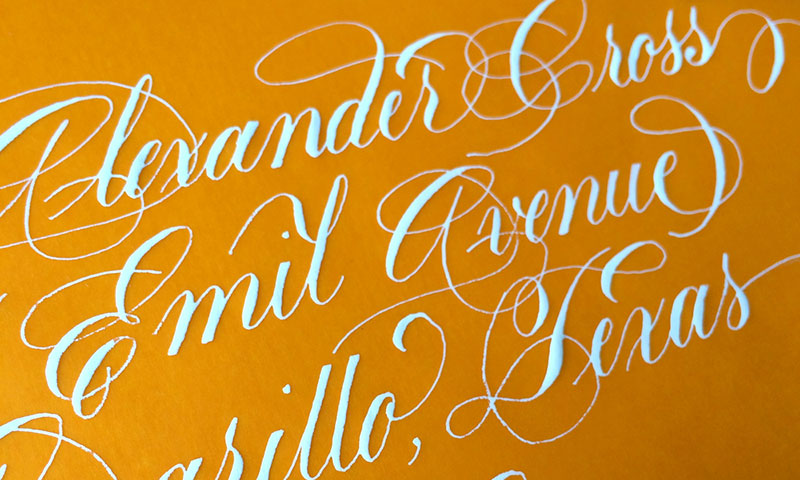 Alexander Cross
Emil Avenue
Texas